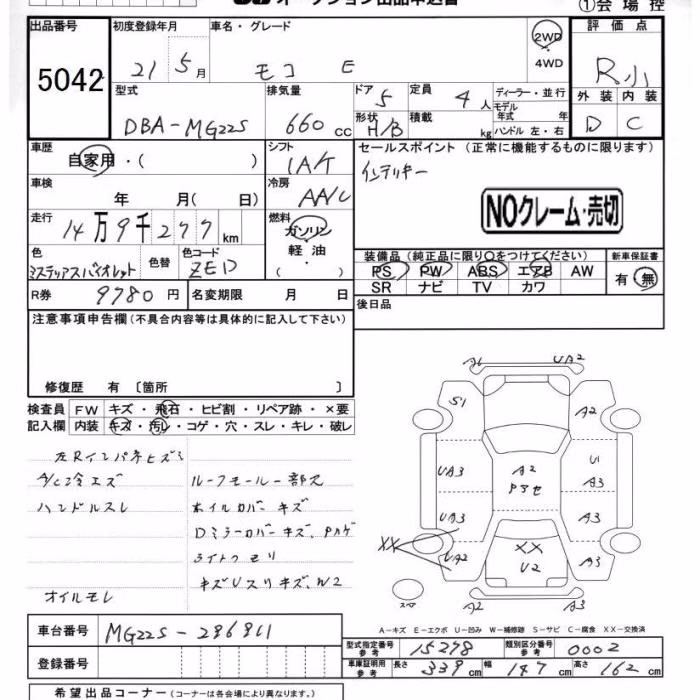 オークション出品申込書
①会場控
出品番号
5042
初度登録年月
21 5月
車名・グレード
モコ E
2WD
4WD
評価点
R小
型式
DBA-MG22S
排気量
660cc
ドア
5
定員
4人
形状
H/B
積載
kg
ディーラー・並行
モデル年式 年
ハンドル 左・右
外装 内装
D C
車歴
自家用・( )
シフト
IA/T
セールスポイント (正常に機能するものに限ります)
インテリキー
NOクレーム・売切
車検
年 月( 日)
冷房
AA/C
走行
14万9千277km
燃料
ガソリン
軽油
( )
色
ミステリアスバイオレット
色替
色コード
ZED
装備品 (純正品に限り○をつけてください)
PS PW ABS エアB AW
SR ナビ TV カワ
新車保証書
有・無
R券
9780円
名変期限
月 日
後日品
注意事項申告欄(不具合内容等は具体的に記入して下さい)
修復歴 有 〔箇所 〕
検査員
記入欄
FW キズ・飛石・ヒビ割・リペア跡・×要
内装 キズ・汚レ・コゲ・穴・スレ・キレ・破レ
左Rインパネヒズミ
A/C冷エズ
ハンドルスレ
オイルモレ
ルーフモール一部欠
ホイルカバーキズ
Dミラーカバーキズ、Pハゲ
ライトクモリ
キズUスリキズ、W2
A1 UA2
S1 A2
UA3 A2 U1
Pヨセ A3
UA3 A3
XX XX
UA2 U2 A3
A2 A2
A-キズ E-エクボ U-凹み W-補修跡 S-サビ C-腐食 XX-交換済
車台番号
MG22S-286811
登録番号
型式指定番号
参考
15278
類別区分番号
参考
0002
車庫証明用
参考
長さ 339cm 幅 147cm 高さ 162cm
希望出品コーナー (コーナーは各会場により異なります。)